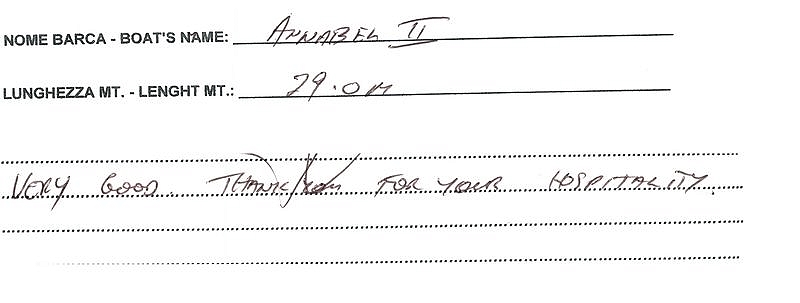 NOME BARCA - BOAT'S NAME: ANNABEL II
LUNGHEZZA MT. - LENGHT MT.: 29.0M
VERY GOOD. THANK YOU FOR YOUR HOSPITALITY.